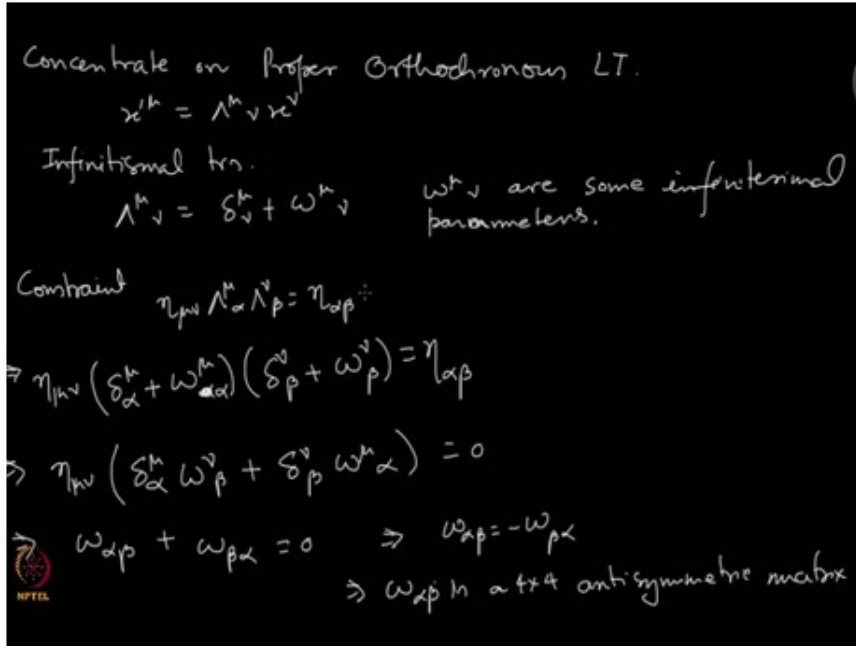 Concentrate on Proper Orthochronous LT.
x'^μ = Λ^μ_ν x^ν
Infinitismal trn.
Λ^μ_ν = δ^μ_ν + ω^μ_ν ω^μ_ν are some infinitesimal
parameters.
Constraint η_μν Λ^μ_α Λ^ν_β = η_αβ
⇒ η_μν (δ^μ_α + ω^μ_α) (δ^ν_β + ω^ν_β) = η_αβ
⇒ η_μν (δ^μ_α ω^ν_β + δ^ν_β ω^μ_α) = 0
⇒ ω_αβ + ω_βα = 0 ⇒ ω_αβ = -ω_βα
⇒ ω_αβ is a 4x4 antisymmetric matrix
NPTEL